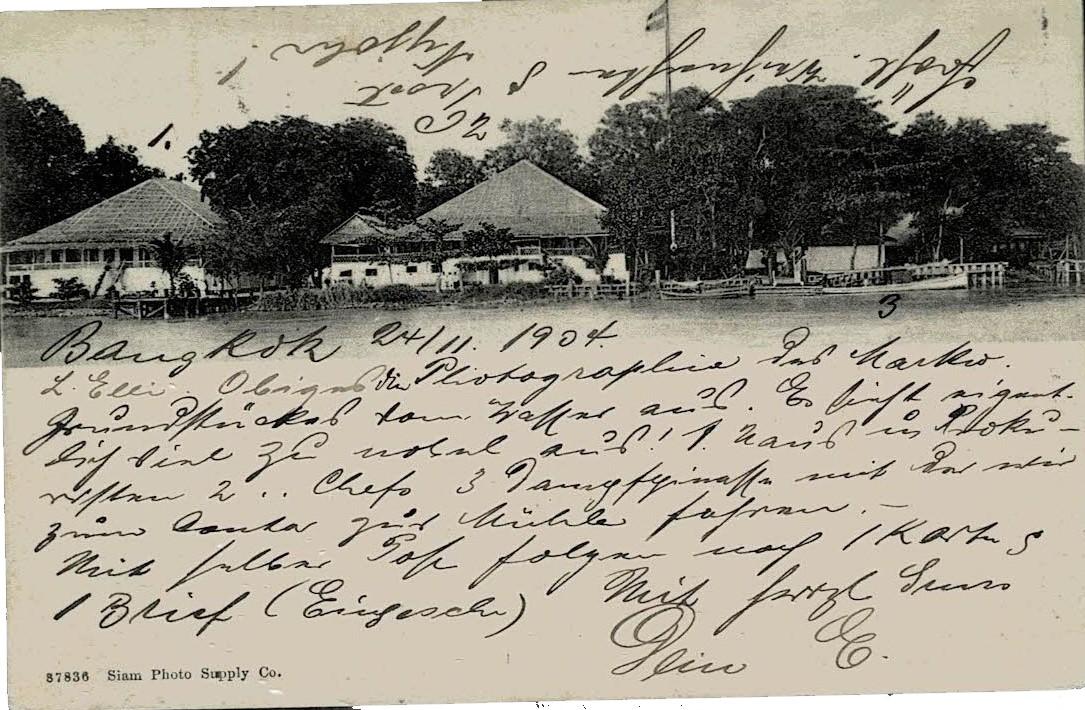 Fröhl. Weihnachten &
Prost
Neujahr!
1.
2
3
Bangkok 24/11. 1904.
L. Elli. Obiges die Photographie des Markw.
Grundstückes vom Wasser aus. Es sieht eigent-
lich viel zu nobel aus! 1. Haus des Proku-
risten 2 .. Chefs 3 Dampfpinasse mit der wir
zum Contor zur Mühle fahren.–
Mit selber Post folgen noch 1 Karte &
1 Brief (Eingeschr)
Mit herzl Gruss
Dein E.
37836 Siam Photo Supply Co.